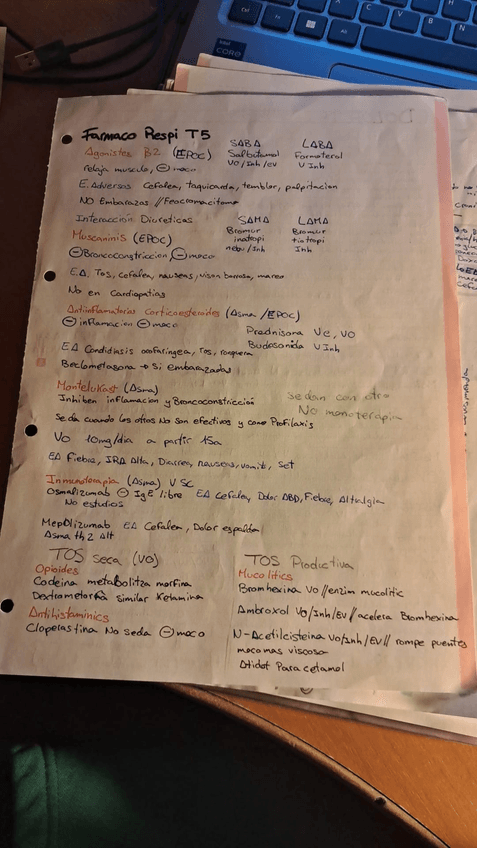 Farmaco Respi T5
Agonistes B2 (EPOC)
SABA
Salbutamol
VO/Inh/EV
LABA
Formoterol
V Inh
relaja musculo, ⊖ moco
E. Adversos Cefalea, taquicardia, temblor, palpitacion
NO Embarazos // Feocromacitoma
Interacción Diureticas
SAMA
Bromur
inatropi
neb / Inh
LAMA
Bromur
tiotropi
Inh
Muscaminis (EPOC)
⊖ Broncoconstriccion, ⊖ moco
E.A, Tos, cefalea, nauseas, vision borrosa, mareo
No en Cardiopatias
Antiinflamatorios Corticoesteroides (Asma /EPOC)
⊖ inflamacion ⊖ moco
Prednisona Ve, VO
Budosonida V Inh
EA Condidiasis orofaringea, Tos, ronquera
Beclometasona → Si Embarazadas
Montelukast (Asma)
Inhiben inflamacion y Broncoconstricción
Se dan con otro
No monoterapia
Se da cuando los otros No son efectivos y como Profilaxis
VO 10mg/dia a partir 15a
EA Fiebre, IRA Alta, Diarrea, nauseas, vomits, Set
Inmunoterapia (Asma) V SC
Osmalizumab ⊖ IgE libre EA Cefalea, Dolor ABD, Fiebre, Altralgia
No estudios
Mepolizumab EA Cefalea, Dolor espalda
Asma th2 Alt
TOS seca (VO)
Opioides
Codeina metabolitza morfina
Dextrametorfà similar Ketamina
Antihistaminics
Cloperastina No seda ⊖ moco
TOS Productiva
Mucolitics
Bromhexina VO // enzim mucolitic
Ambroxol VO/Inh/EV // acelera Bromhexina
N-Acetilcisteina VO/Inh/EV // rompe puentes
moco mas viscoso
Atidot Paracetamol
intel
CORE